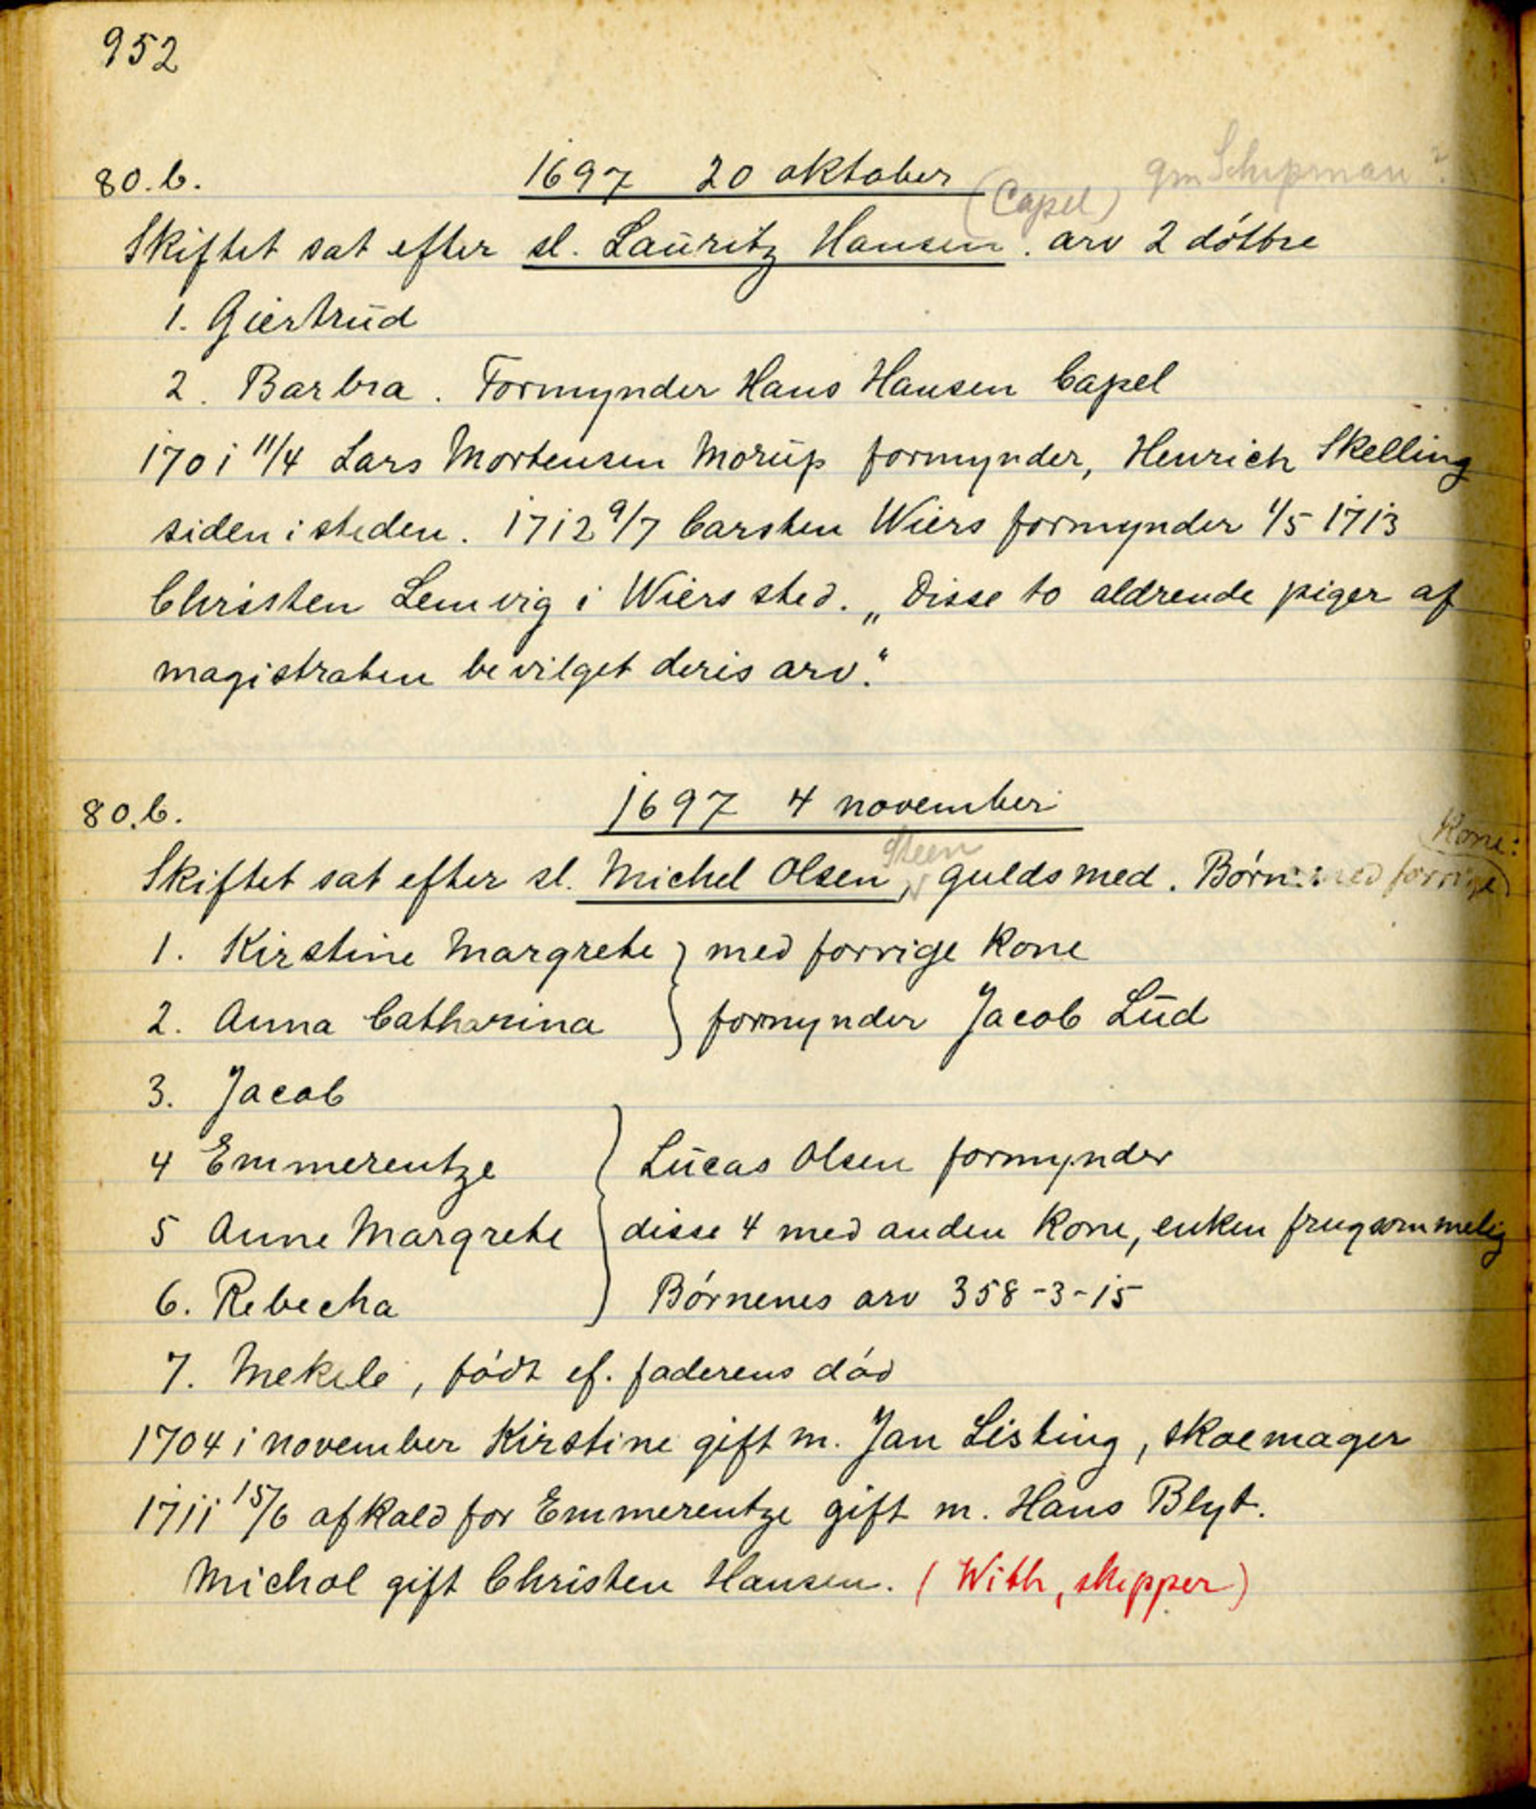 952
80.b. 1697 20 oktober
(Capel) gm Schipman ?
Skiftet sat efter sl. Lauritz Hansen. arv 2 döttre
1. Giertrud
2. Barbra. Formynder Hans Hansen Capel
1701 11/4 Lars Mortensen Morup formynder, Henrich Skelling
siden i steden. 1712 9/7 Carsten Wiers formynder 1/5 1713
Christen Lemvig i Wiers sted. „Disse to aldrende piger af
magistraten bevilget deris arv."
80.b. 1697 4 november
Steen Kone:
Skiftet sat efter sl. Michel Olsen, guldsmed. Børn: med forrige
1. Kirstine Margrete } med forrige kone
2. Anna Catharina } formynder Jacob Lud
3. Jacob
4 Emmerentze } Lucas Olsen formynder
5 Anne Margrete } disse 4 med anden kone, enken frugsommelig
6. Rebecha } Børnenes arv 358-3-15
7. Mekele, født ef. faderens død
1704 i november Kirstine gift m. Jan Listing, skoemager
1711 15/6 afkald for Emmerentze gift m. Hans Blyt.
Michol gift Christen Hansen. (With, skipper)